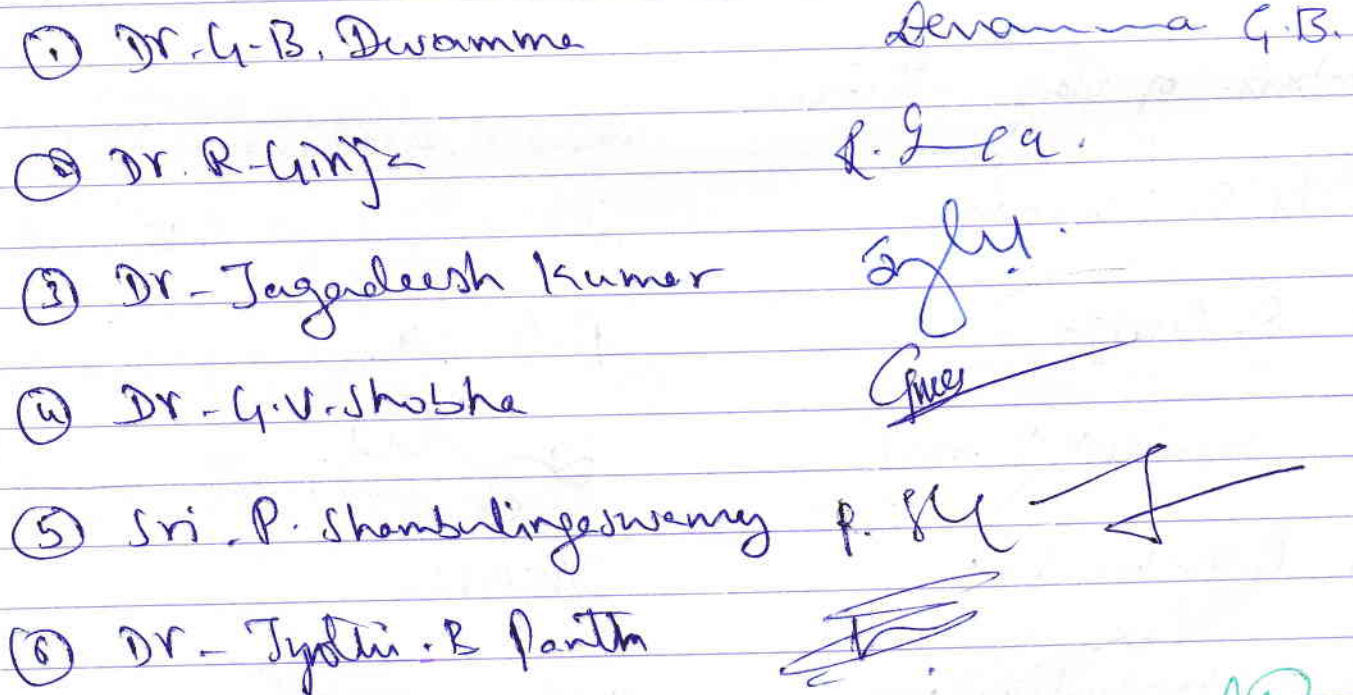 ① Dr. G.B. Devamma Devamma G.B.
② Dr. R. Girija
③ Dr - Jagadeesh Kumar
④ Dr - G.V. Shobha
⑤ Sri. P. Shambulingaswamy
⑥ Dr - Jyothi. B